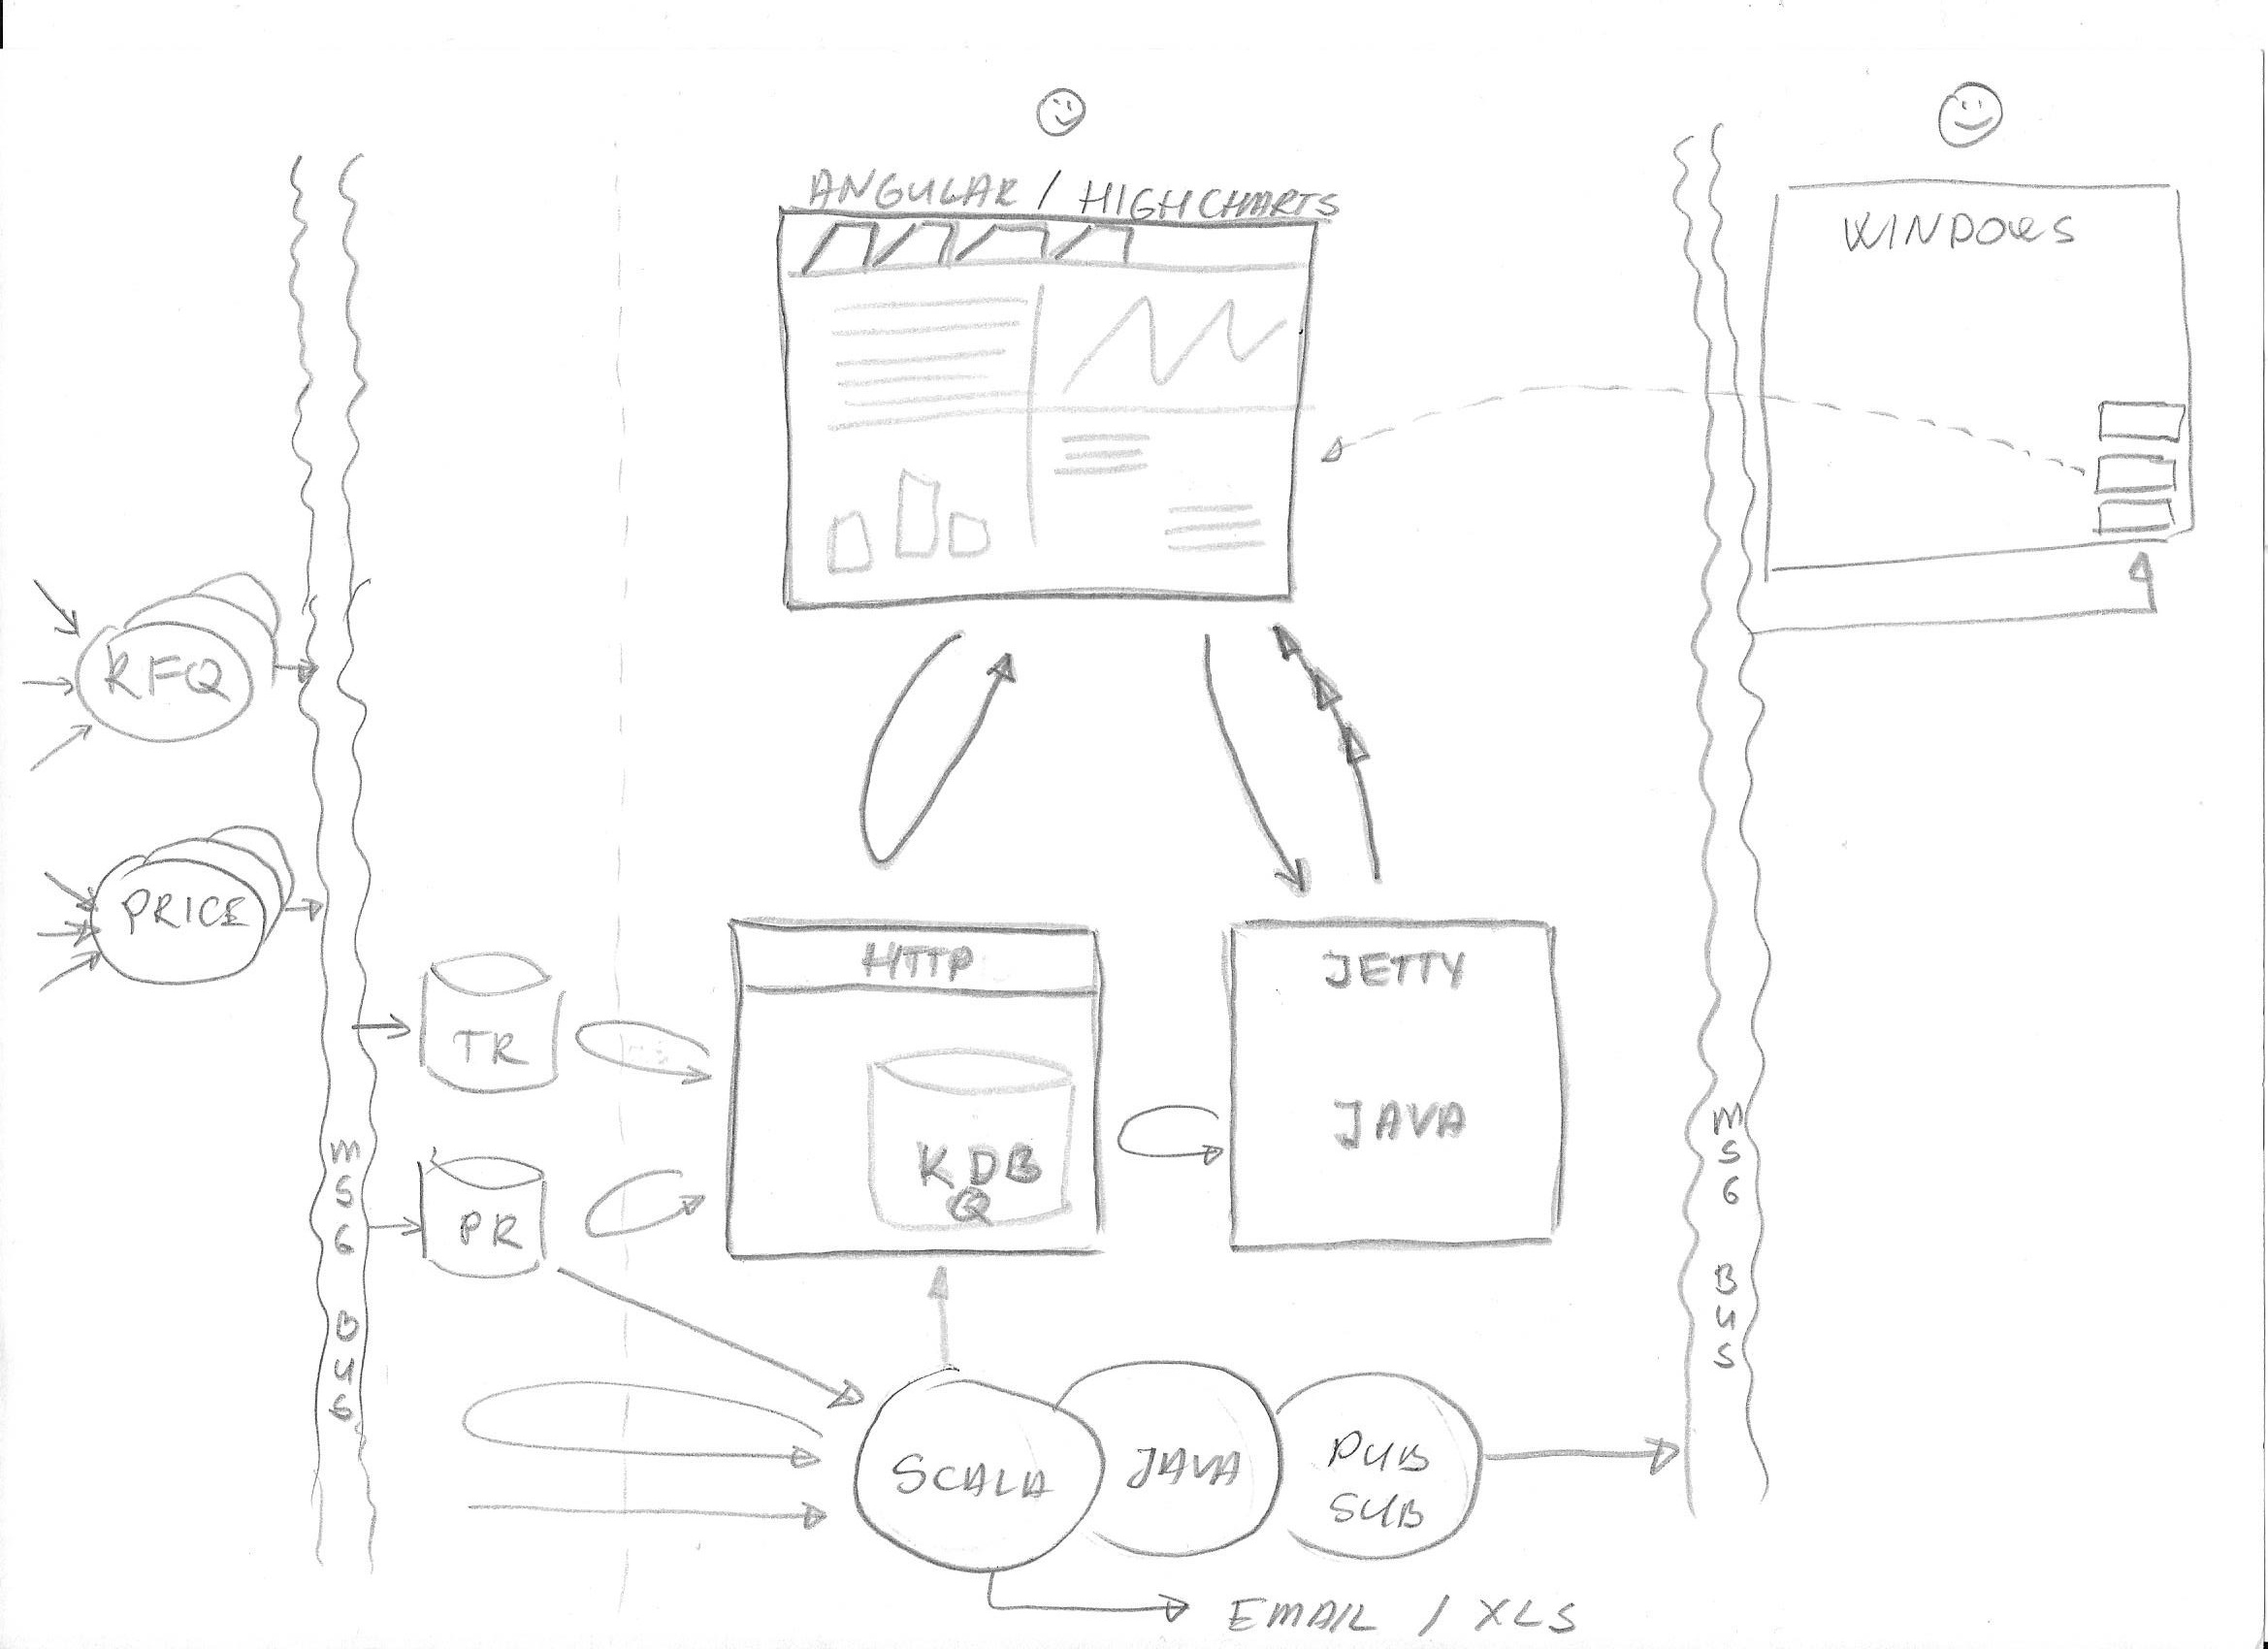 ANGULAR / HIGHCHARTS
WINDOWS
RFQ
PRICE
HTTP
JETTY
TR
JAVA
KDB
Q
PR
MSG BUS
MSG BUS
SCALA
JAVA
PUB
SUB
EMAIL / XLS